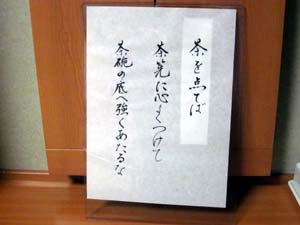 茶を点てば
茶筅に心よくつけて
茶碗の底へ強くあたるな